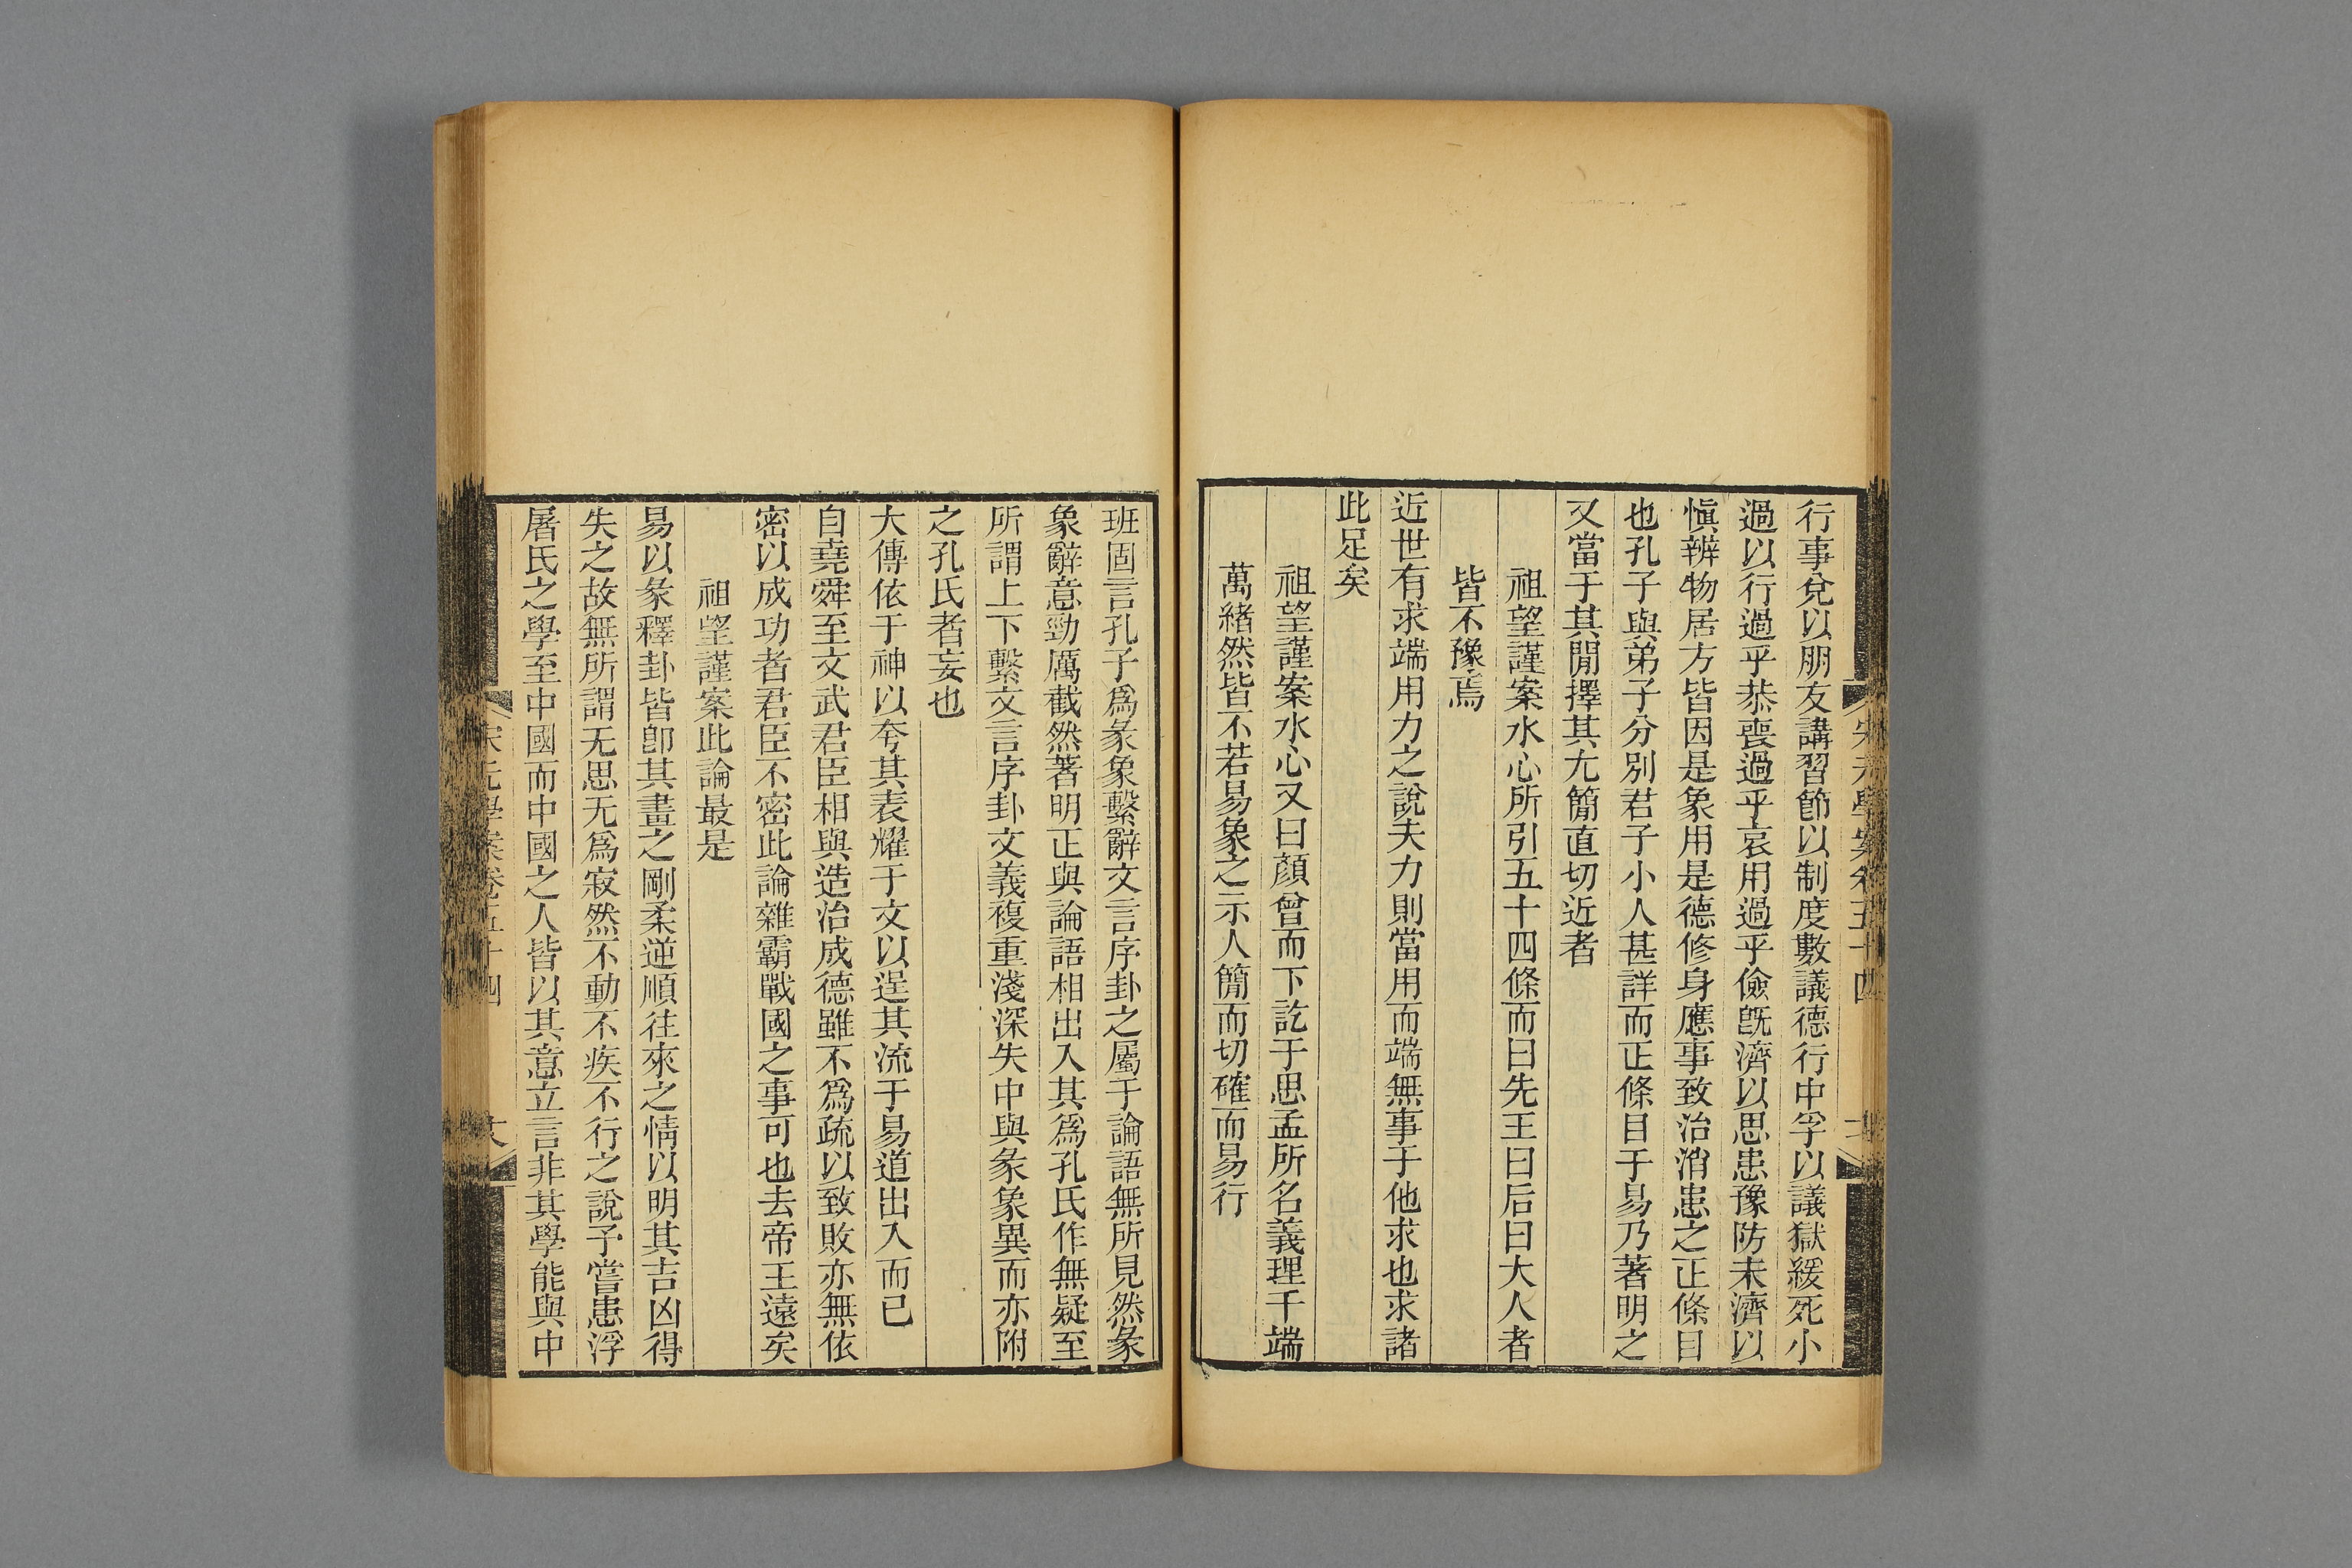 行事兌以朋友講習節以制度數議德行中孚以議獄緩死小
過以行過乎恭喪過乎哀用過乎儉旣濟以思患豫防未濟以
愼辨物居方皆因是象用是德修身應事致治消患之正條目
也孔子與弟子分別君子小人甚詳而正條目于易乃著明之
又當于其閒擇其尤簡直切近者
祖望謹案水心所引五十四條而曰先王曰后曰大人者
皆不豫焉
近世有求端用力之說夫力則當用而端無事于他求也求諸
此足矣
祖望謹案水心又曰顏曾而下訖于思孟所名義理千端
萬緒然皆不若易象之示人簡而切確而易行
班固言孔子爲彖象繫辭文言序卦之屬于論語無所見然彖
象辭意勁厲截然著明正與論語相出入其爲孔氏作無疑至
所謂上下繫文言序卦文義複重淺深失中與彖象異而亦附
之孔氏者妄也
大傳依于神以夸其表耀于文以逞其流于易道出入而已
自堯舜至文武君臣相與造治成德雖不爲疏以致敗亦無依
密以成功者君臣不密此論雜霸戰國之事可也去帝王遠矣
祖望謹案此論最是
易以彖釋卦皆卽其畫之剛柔逆順往來之情以明其吉凶得
失之故無所謂无思无爲寂然不動不疾不行之說予嘗患浮
屠氏之學至中國而中國之人皆以其意立言非其學能與中
宋元學案卷五十四